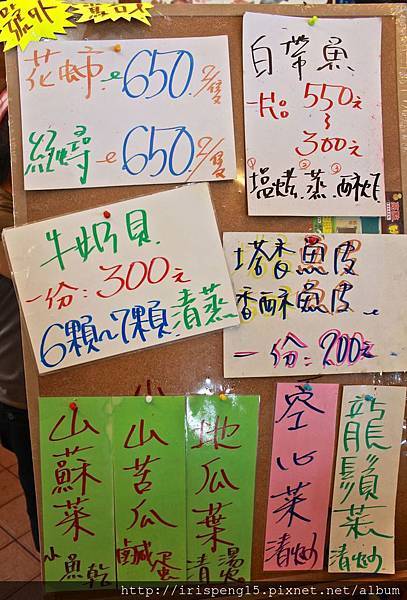 號外
花蟳 650 2/隻
紅蟳 650 2/隻
白帶魚
一片。 550元
~
300元
①鹽烤 ②蒸 ③酥炸
牛奶貝
一份:300元
6顆~7顆 清蒸
塔香魚皮
香酥魚皮
一份:200元
山蘇菜
小魚乾
小山苦瓜
鹹蛋
地瓜葉
清燙
空心菜
清炒
龍鬚菜
清炒
http://irispeng15.pixnet.net/album